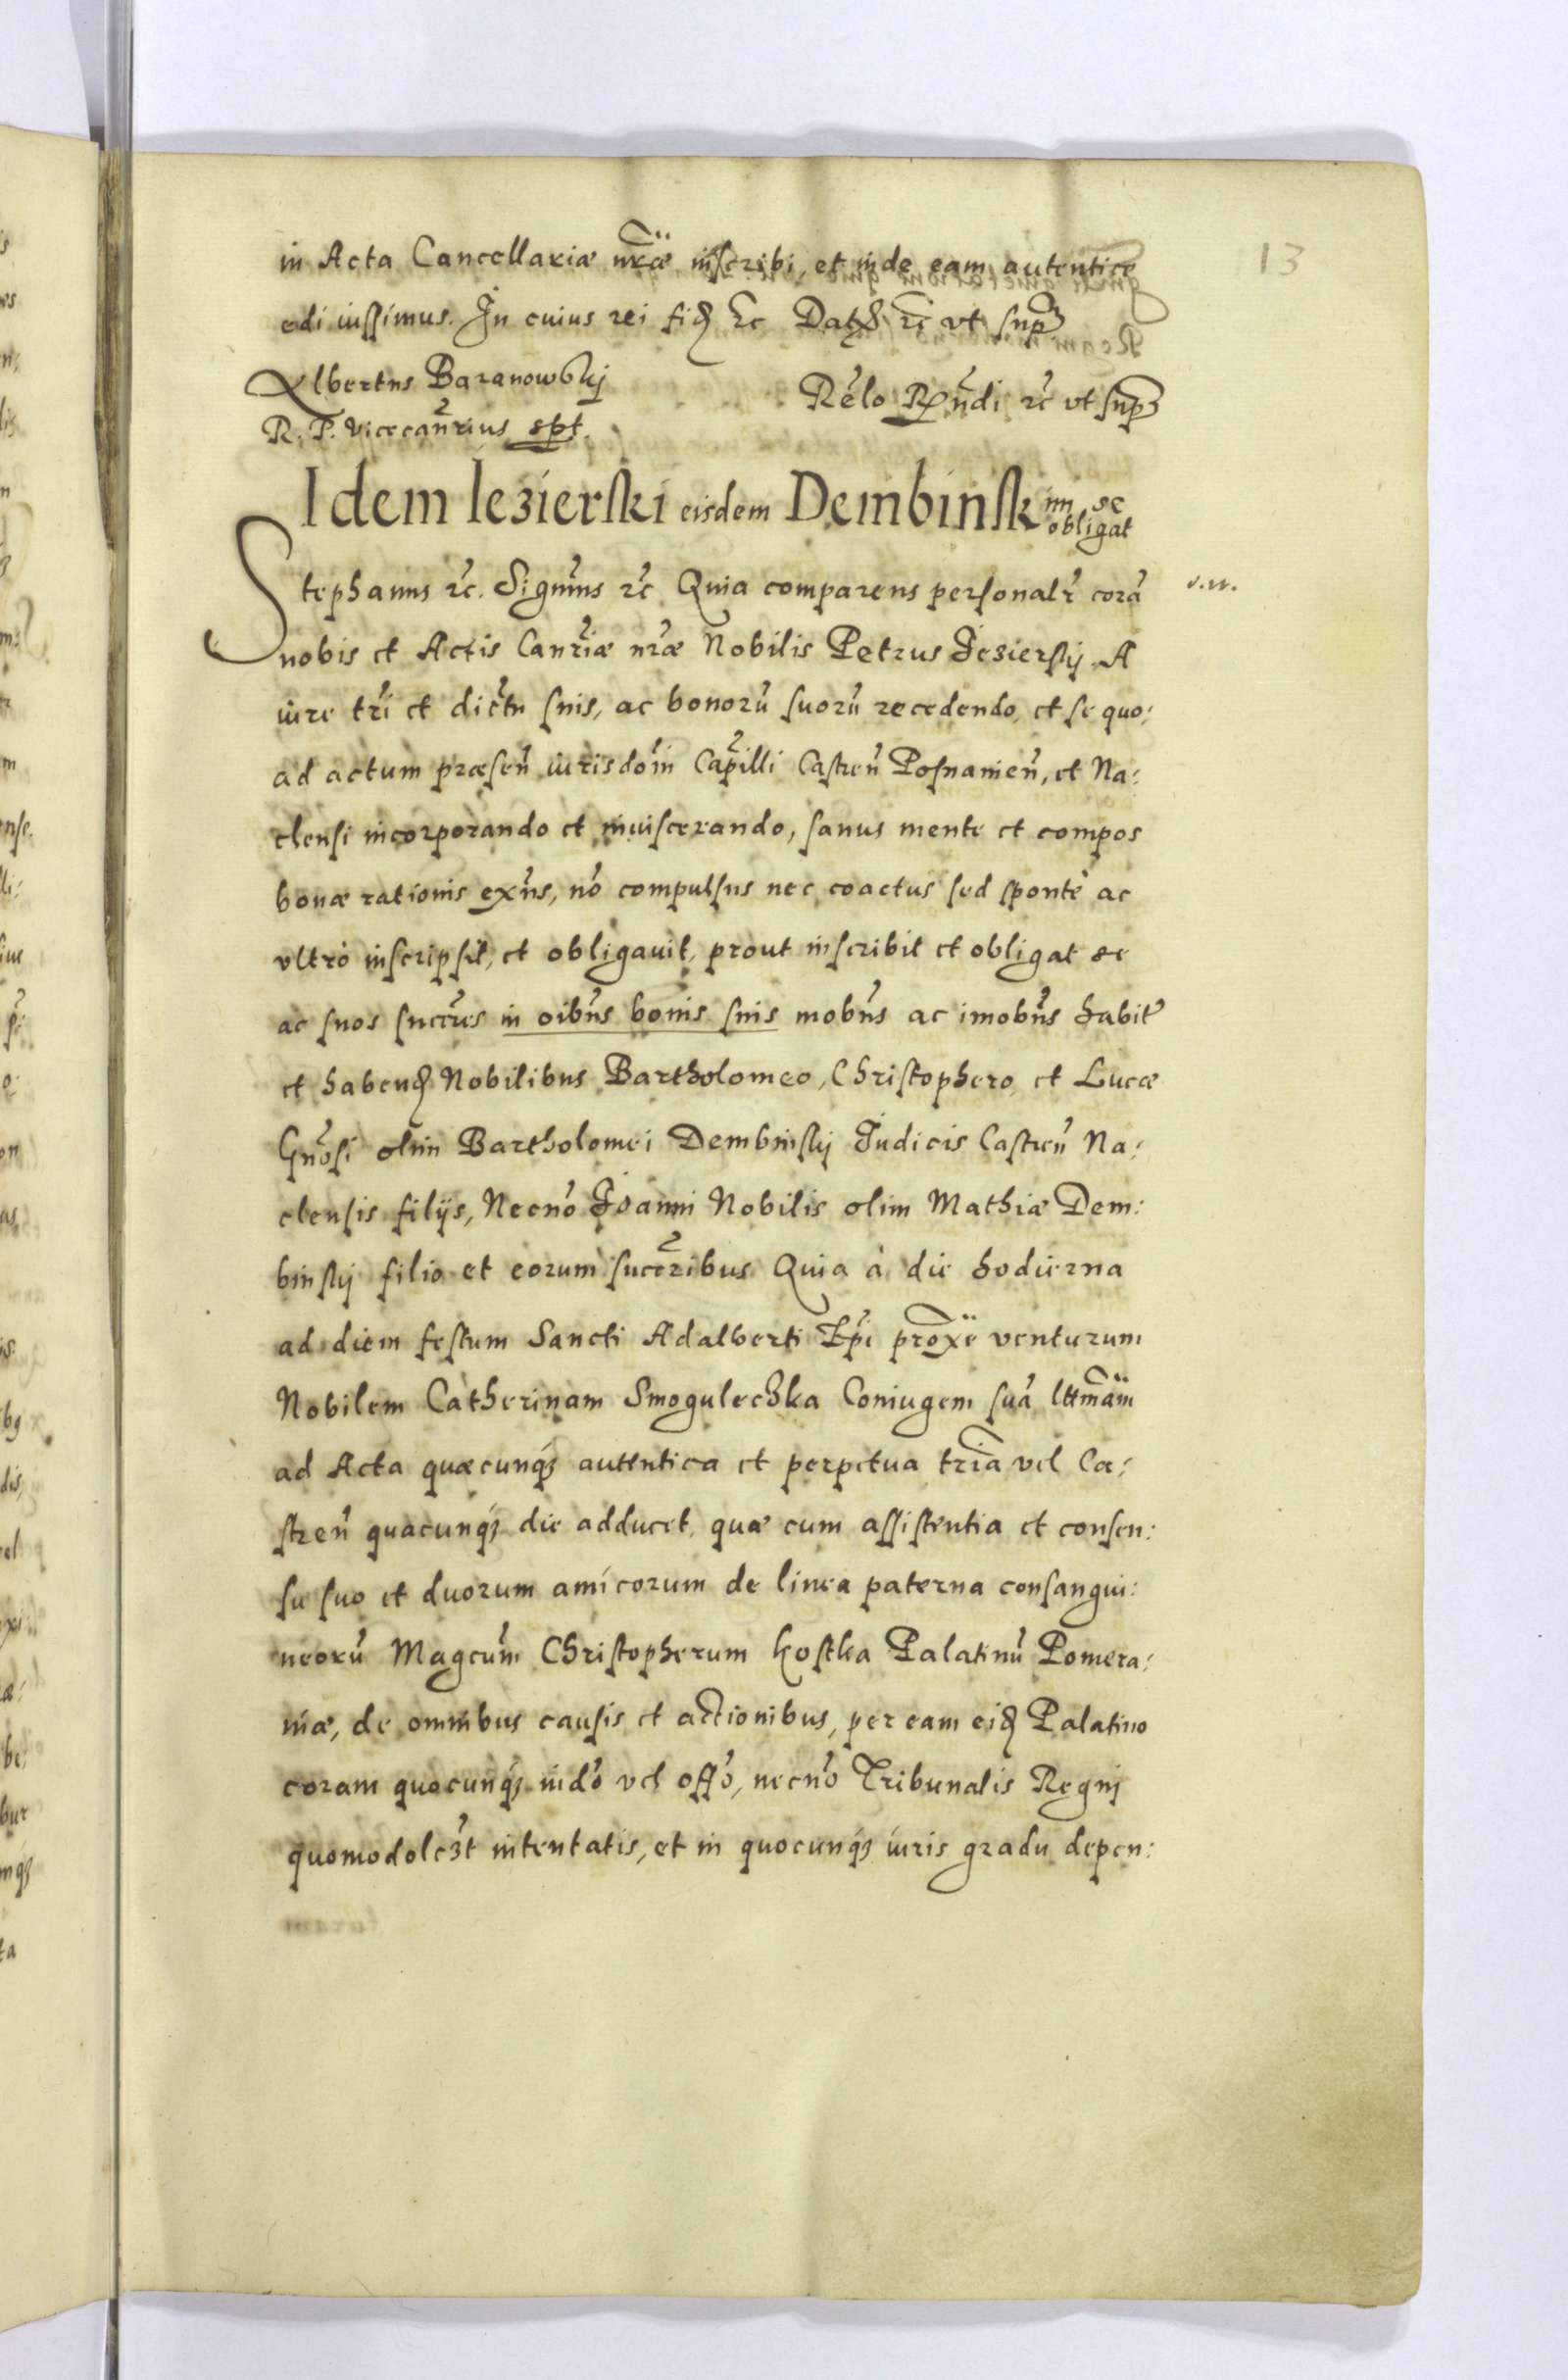 in Acta Cancellariæ nr̃æ inscribi, et inde eam autentice
edi iussimus. In cuius rei fid ꝛc Dat ꝛc vt sup
13
Albertus Baranowskj
R. P. Vicecan̄rius spt.
Rẽlo Rñdi ꝛc vt sup
Idem Iezierski eisdem Dembinskim se obligat
Stephanus ꝛc. Significamus ꝛc Quia comparens personalr̃ corã
v.n.
nobis et Actis Canr̃iæ nr̃æ Nobilis Petrus Jezierskj A
iure tr̃i et dictu suis, ac bonorũ suorũ recedendo, et se quo:
ad actum præsen̄ iurisdoīn Capilli Castren̄ Posnanien̄, et Na:
clensi incorporando et inuiscerando, sanus mente et compos
bonæ rationis exñs, nō compulsus nec coactus sed sponte ac
vltrò inscripsit, et obligauit, prout inscribit et obligat se
ac suos succr̃es in oibũs bonis suis mobñs ac imobñs habit̃
et habend Nobilibus Bartholomeo, Christophero, et Lucæ
Gnõsi olim Bartholomei Dembinskj Judicis Castren̄ Na:
clensis filijs, Necnō Joanni Nobilis olim Mathiæ Dem:
binskj filio et eorum succr̃ibus Quia à die hodierna
ad diem festum Sancti Adalberti Ep̄i prox̄e venturum
Nobilem Catherinam Smogulechka Coniugem suã lttmãm
ad Acta quæcunqȝ autentica et perpetua tr̃ia vel Ca:
stren̄ quacunqȝ die adducet, quæ cum assistentia et consen:
su suo et duorum amicorum de linea paterna consangui:
neorũ Magcũm Christopherum Kostka Palatinũ Pomera:
niæ, de omnibus causis et actionibus, per eam eid Palatino
coram quocunqȝ iud̄o vel offō, necnō Tribunalis Regnj
quomodolȝt intentatis, et in quocunqȝ iuris gradu depen: